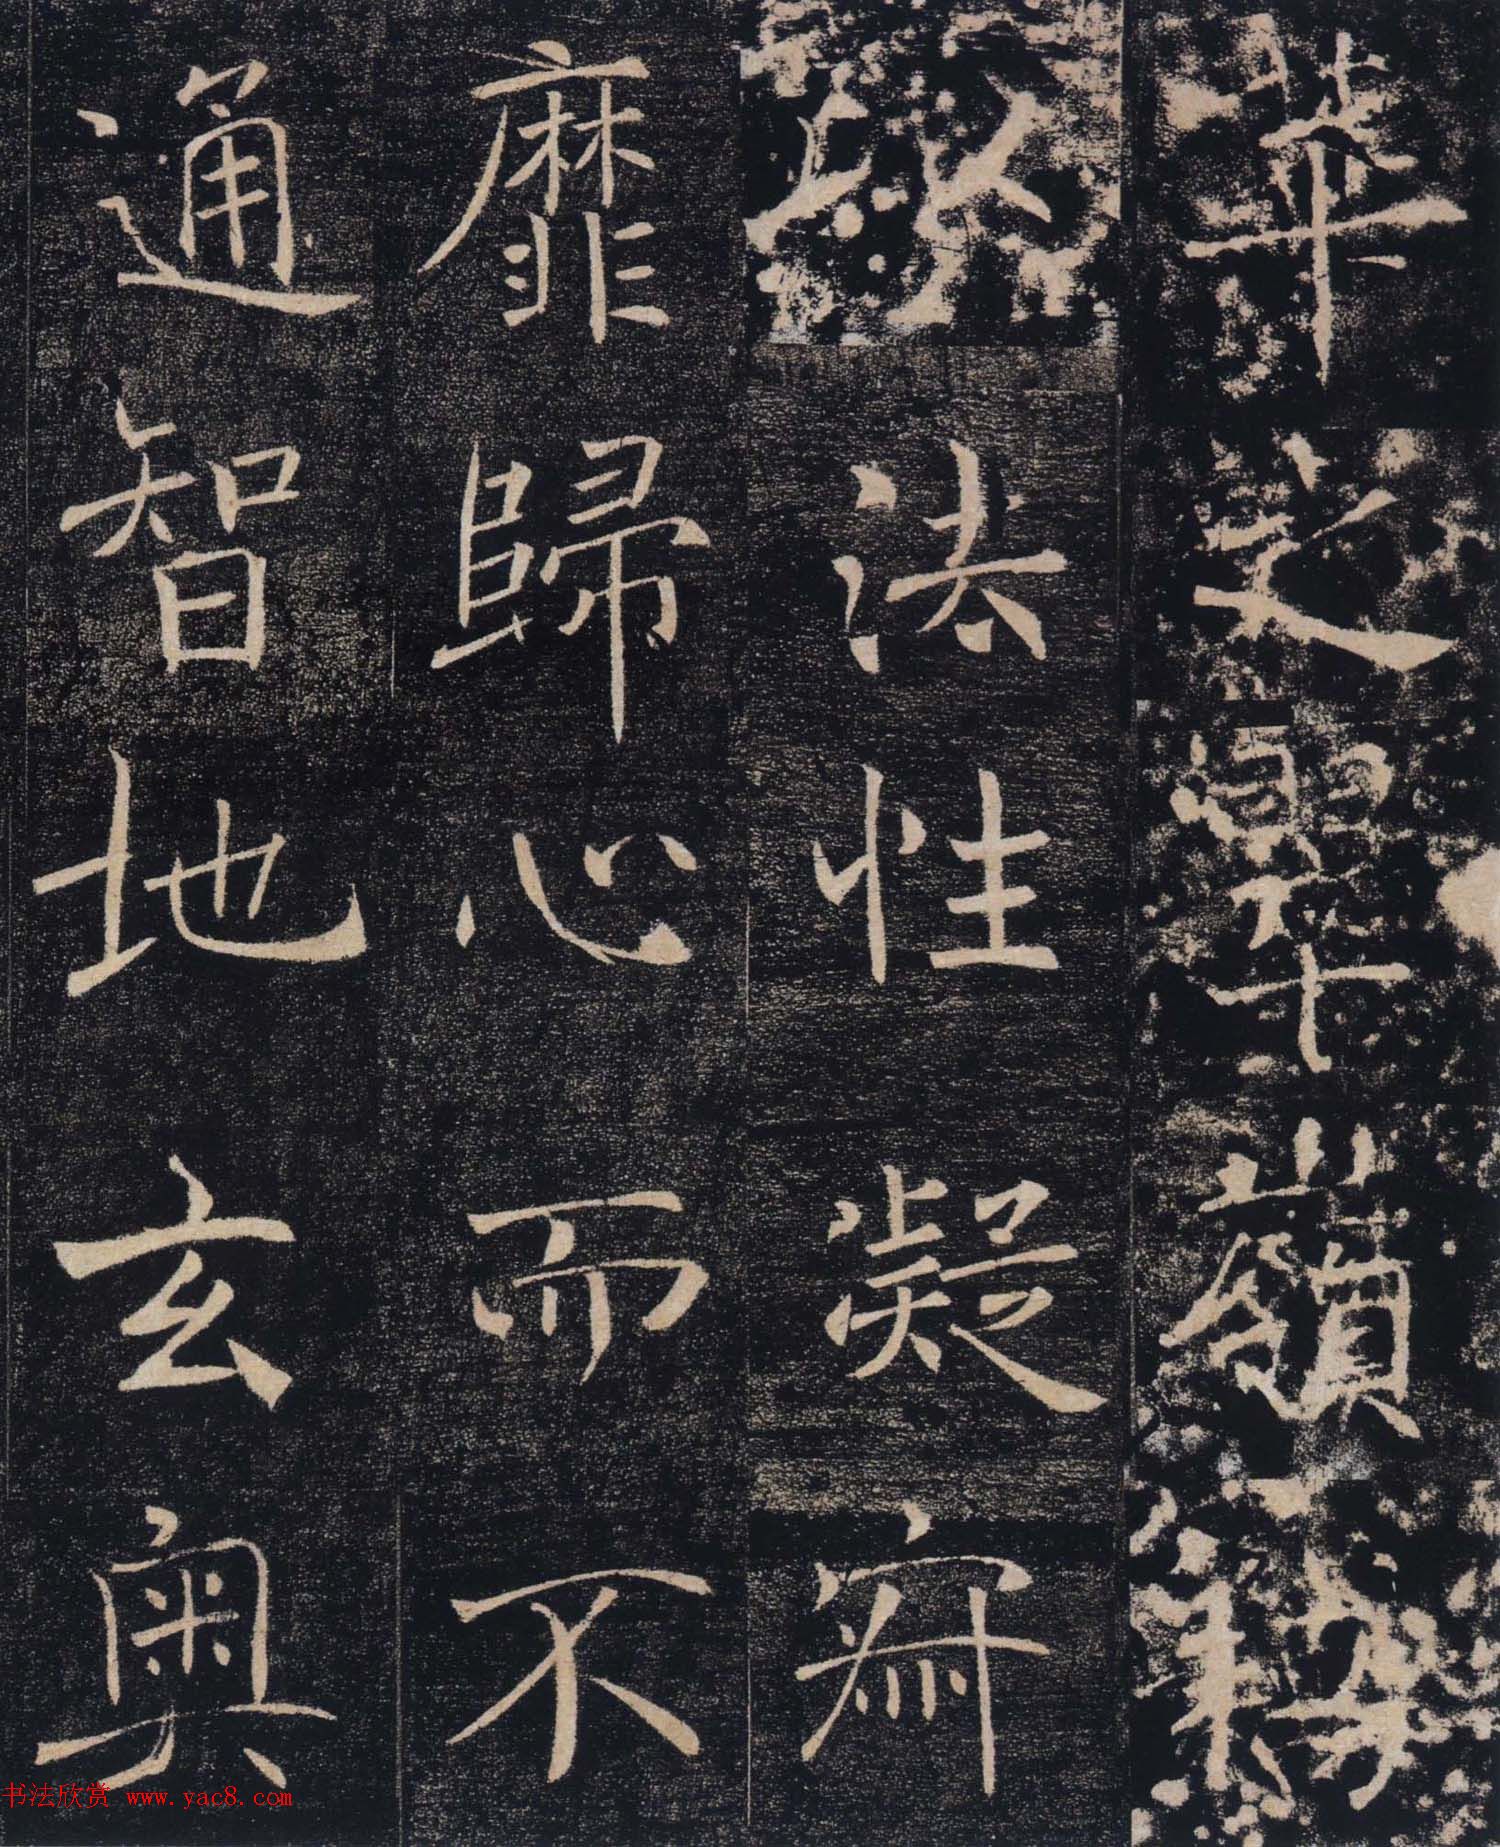 華之翠嶺
法性凝寂
靡歸心而不
通智地玄奧
书法欣赏 www.yac8.com